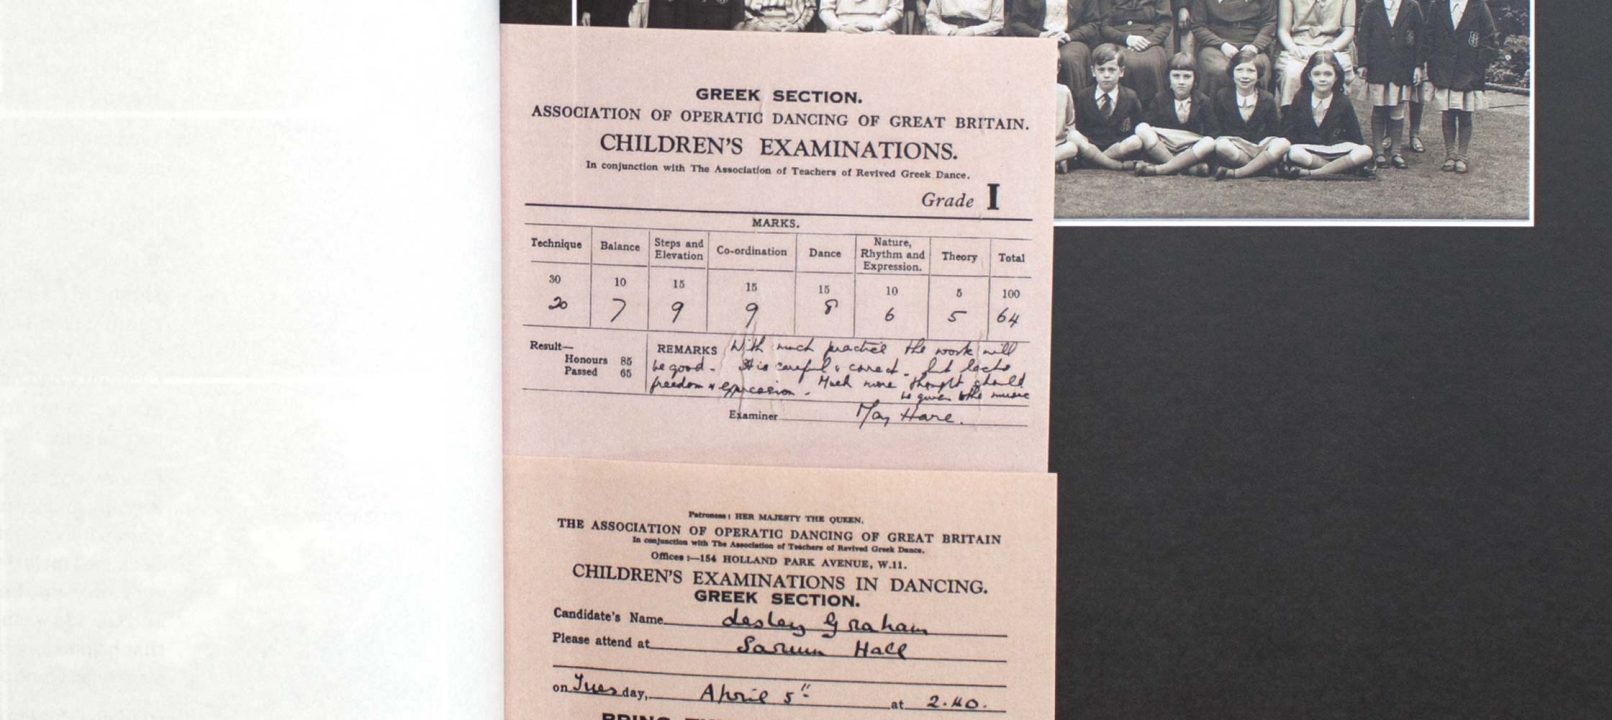 GREEK SECTION.
ASSOCIATION OF OPERATIC DANCING OF GREAT BRITAIN.
CHILDREN'S EXAMINATIONS.
In conjunction with The Association of Teachers of Revived Greek Dance.
Grade I
MARKS.
Technique Balance Steps and Elevation Co-ordination Dance Nature, Rhythm and Expression. Theory Total
30 10 15 15 15 10 5 100
20 7 9 9 8 6 5 64
Result— REMARKS With much practice the work will
Honours 85 be good. It is careful & correct. but lacks
Passed 65 freedom & expression. Much more thought should
be given to the music
Examiner May Hare.
Patroness: HER MAJESTY THE QUEEN.
THE ASSOCIATION OF OPERATIC DANCING OF GREAT BRITAIN
In conjunction with The Association of Teachers of Revived Greek Dance.
Offices:—154 HOLLAND PARK AVENUE, W.11.
CHILDREN'S EXAMINATIONS IN DANCING.
GREEK SECTION.
Candidate's Name Lesley Graham
Please attend at Sarum Hall
on Tuesday, April 5th at 2.40.